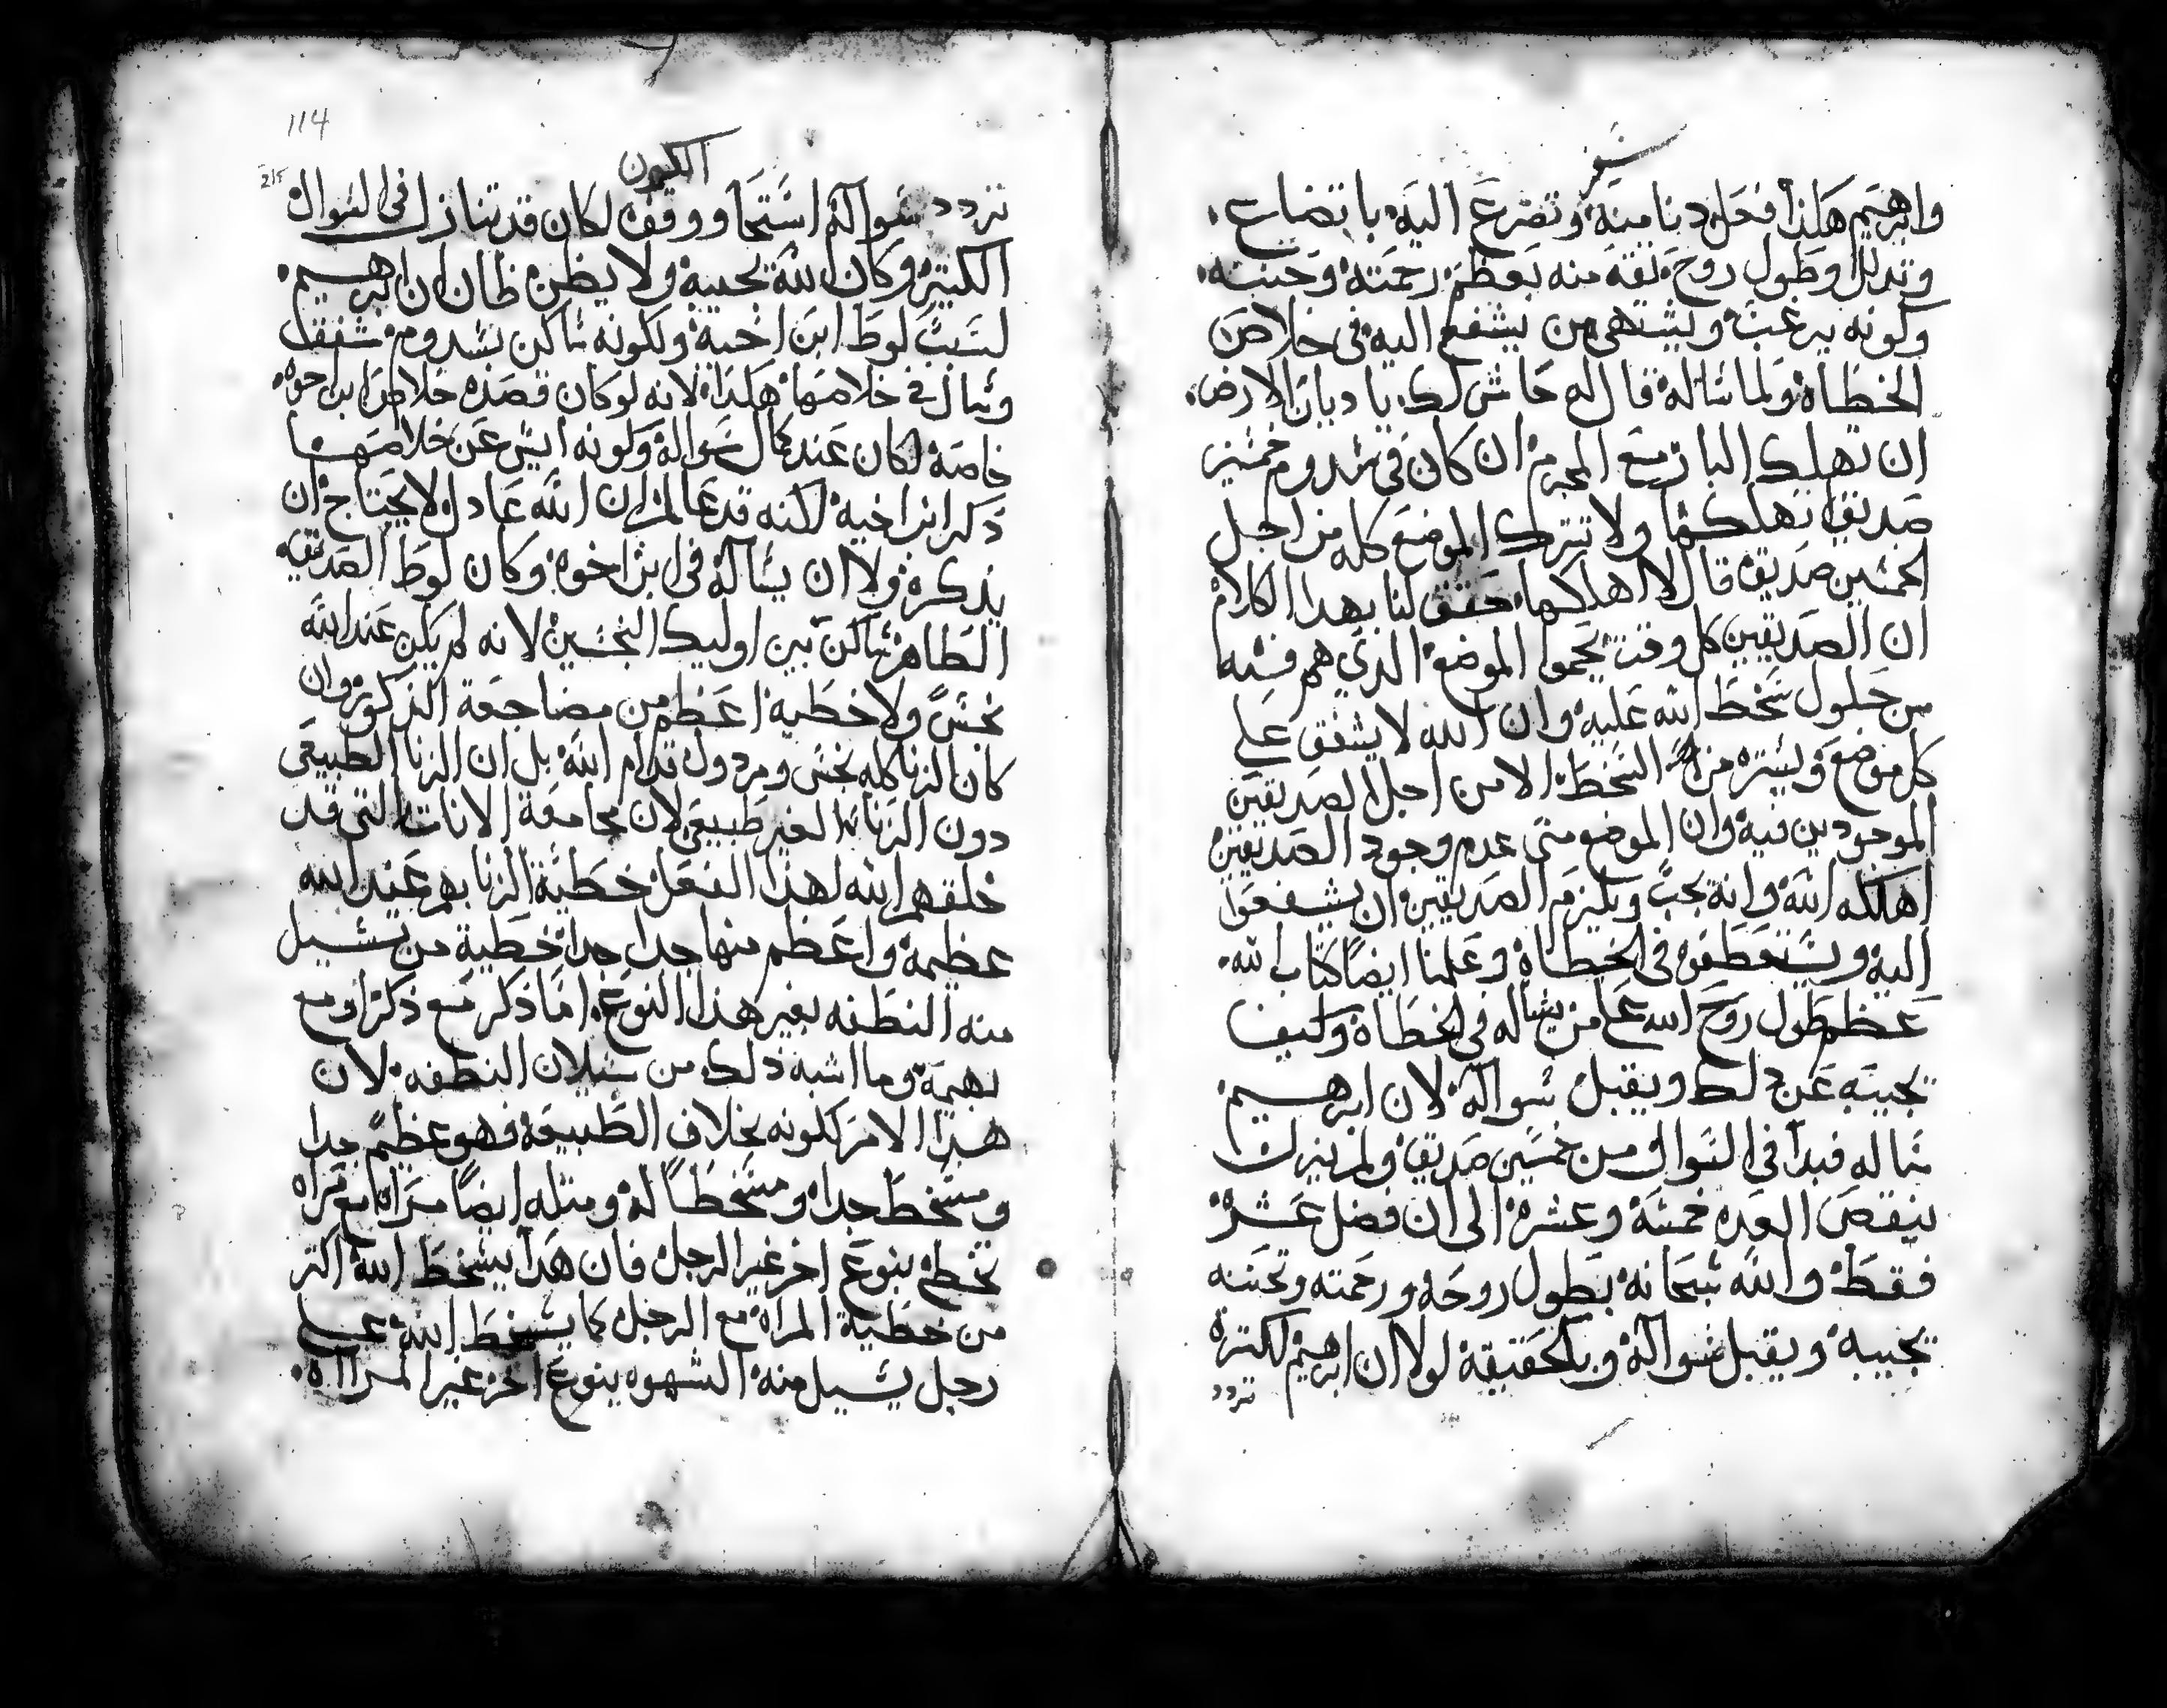 سفر
وابرهيم هكذا فعل دنا منه وتضرع اليه باتضاع
وتدلل وطول روح ثقه منه بعظم رحمته وحننته
وكونه يرغب ويشتهي من يشفع اليه في خلاص
الخطاه ولما ساله قال له حاش لك يا ديان الارض
ان تهلك البار مع المجرم ان كان في سدوم خمسين
صديق تهلكها ولا تترك الموضع كله من اجل
الخمسين صديق قال لا اهلكها حقق لنا بهدا الكلام
ان الصديقين كل وقت يحموا الموضع الدي هم فيه
من حلول سخط الله عليه وان الله لا يشفق علي
كل موضع ويستره من السخط الا من اجل الصديقين
الموجودين فيه وان الموضع متى عدم وجود الصديقين
اهلكه الله وانه يجب ويلزم الصديقين ان يشفعوا
اليه ويستعطفوه في الخطاه وعلمنا ايضا كتاب الله
عظم طول روح الله على من يساله في الخطاه وكيف
يجيبه عن دلك ويقبل سواله لان ابرهيم
ساله فبدا في السوال من خمسين صديق ولم يزل
ينقص العده خمسه وعشره الى ان فضل عشره
فقط والله سبحانه بطول روحه ورحمته وتحننه
يجيبه ويقبل سواله وبالحقيقة لولا ان ابرهيم لكترة
تردد
114
215
الكون
تردد سواله استحا ووقف لكان قد تنازل في السوال
الكتير وكان الله يجيبه ولا يظن ظان ان ابرهيم
لسبب لوط ابن اخيه ولكونه ساكن سدوم شفق
وسال في خلاصها هكدا لانه لو كان قصده خلاص ابن اخوه
خاصة لكان عند كمال سواله وكونه ايس عن خلاصها
دكر ابن اخيه لكنه قد عالم ان الله عادل لا يحتاج ان
يدكره ولا ان يساله في ابن اخوه وكان لوط الصديق
الطاهر ساكن بين اوليك النجسين لانه لم يكن عند الله
نجس ولا خطيه اعظم من مضاجعة الدكوره وان
كان الزنا كله نجس ومردول قدام الله بل ان الزنا الطبيعي
دون الزنا الغير طبيعي لان مجامعة الانات التي قد
خلقهم الله لهذا الفعل خطية الزنا بهم عند الله
عظيمه واعظم منها جدا جدا خطية من يسيل
منه النطفه بغير هذا النوع اما ذكر مع ذكر او مع
بهيمه وما اشبه دلك من سيلان النطفه لان
هدا الامر لكونه بخلاف الطبيعة فهو عظيم جدا
ومسخط جدا ومسخطا له ومتله ايضا مراه مع مراه
تخطي بنوع اخر غير الرجل فان هدا يسخط الله اكتر
من خطية المراه مع الرجل كما يسخط الله علي
رجل يسيل منه الشهوه بنوع اخر غير المراه